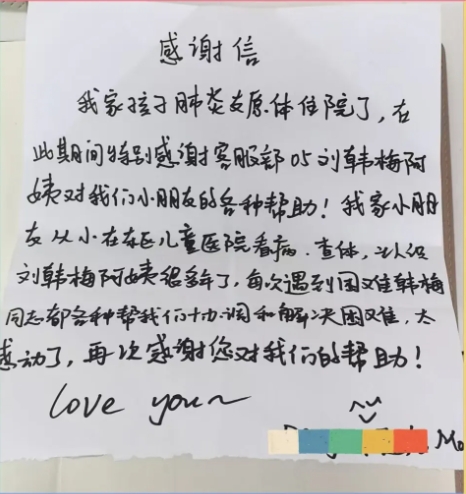 感谢信
我家孩子肺炎支原体住院了，在
此期间特别感谢客服部05刘韩梅阿
姨对我们小朋友的各种帮助！我家小朋
友从小在东区儿童医院看病、查体，认识
刘韩梅阿姨很多年了，每次遇到困难韩梅
同志都各种帮我们协调和解决困难，太
感动了，再次感谢您对我们的帮助！
love you~